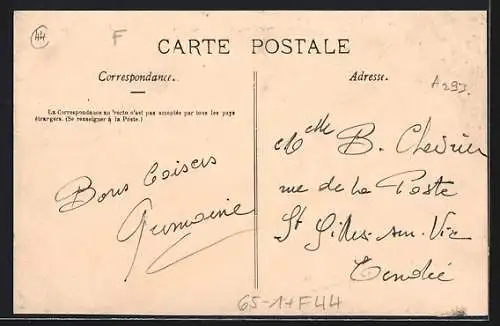 44
F
CARTE POSTALE
Correspondance.
La Correspondance au recto n'est pas acceptée par tous les pays
étrangers. (Se renseigner à la Poste.)
Bons baisers
Germaine
Adresse.
A297.
Melle B. Chevrier
rue de la Poste
St Gilles-sur-Vie
Vendée
65-1+F44